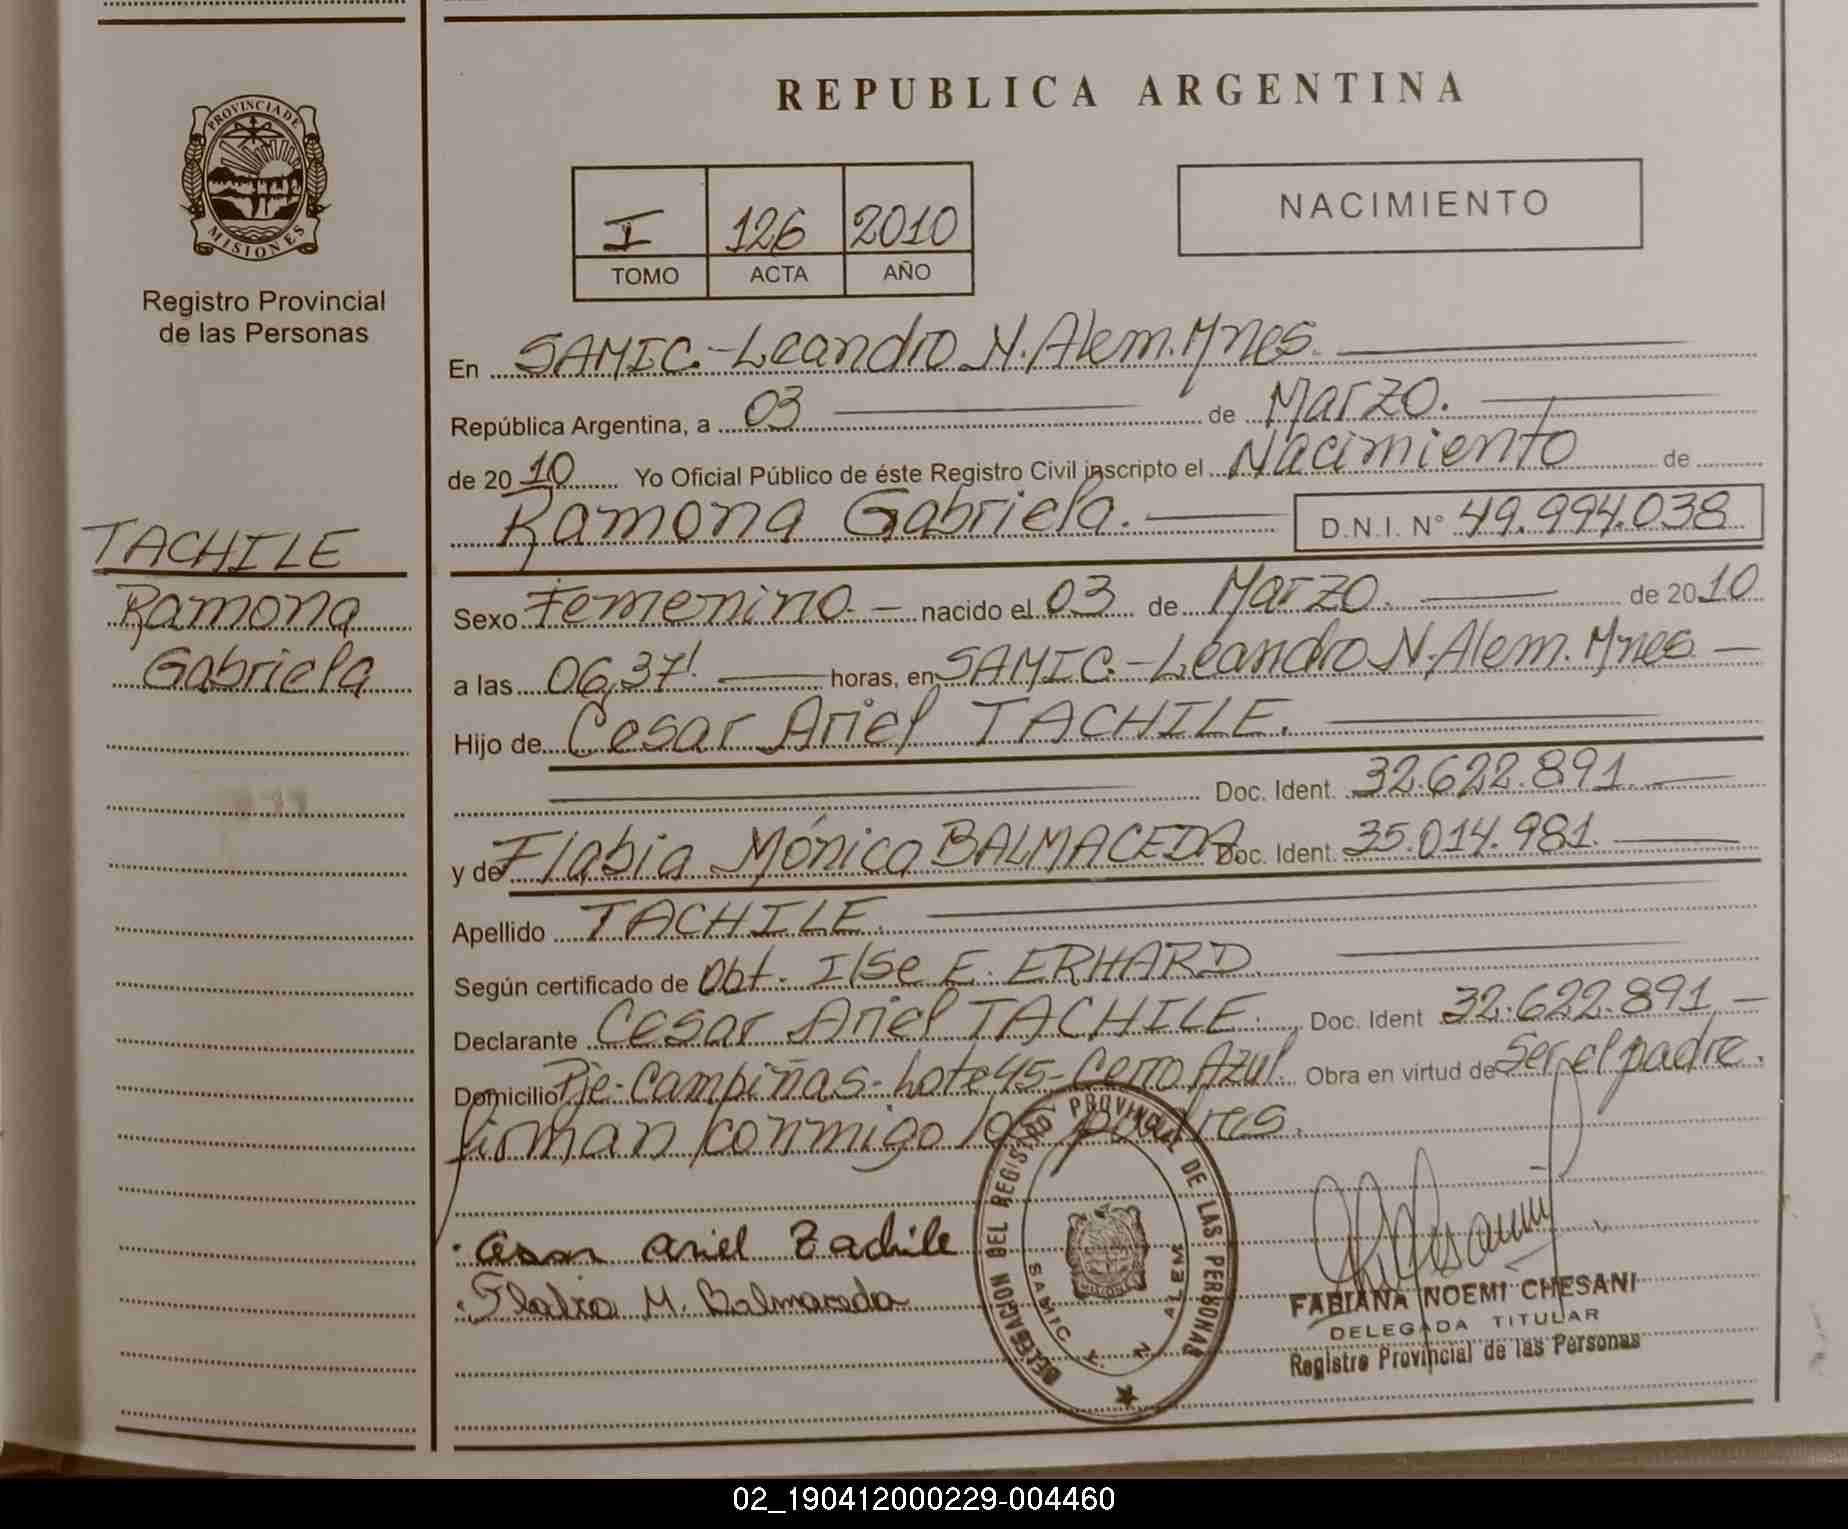 REPUBLICA ARGENTINA
PROVINCIA DE
MISIONES
Registro Provincial
de las Personas
I 126 2010
TOMO ACTA AÑO
NACIMIENTO
En SAMIC.-Leandro N. Alem. Mnes.
República Argentina, a 03 de Marzo.
de 2010 Yo Oficial Público de éste Registro Civil inscripto el Nacimiento de
Ramona Gabriela. D.N.I. N° 49.994.038
TACHILE
Ramona
Gabriela
Sexo Femenino. nacido el 03 de Marzo. de 2010
a las 06,37' horas, en SAMIC.-Leandro N. Alem. Mnes
Hijo de Cesar Ariel TACHILE.
Doc. Ident. 32.622.891.
y de Flabia Mónica BALMACEDA Doc. Ident. 35.014.981.
Apellido TACHILE.
Según certificado de Obt. Ilse E. ERHARD.
Declarante Cesar Ariel TACHILE. Doc. Ident 32.622.891
Domicilio Pje. Campiñas-Lote 45-Cerro Azul. Obra en virtud de Ser el padre.
firman conmigo los padres.
Cesar Ariel Tachile
Flabia M. Balmaceda
DELEGACION DEL REGISTRO PROVINCIAL DE LAS PERSONAS
SAMIC L. N. ALEM
FABIANA NOEMI CHESANI
DELEGADA TITULAR
Registro Provincial de las Personas
02_190412000229-004460